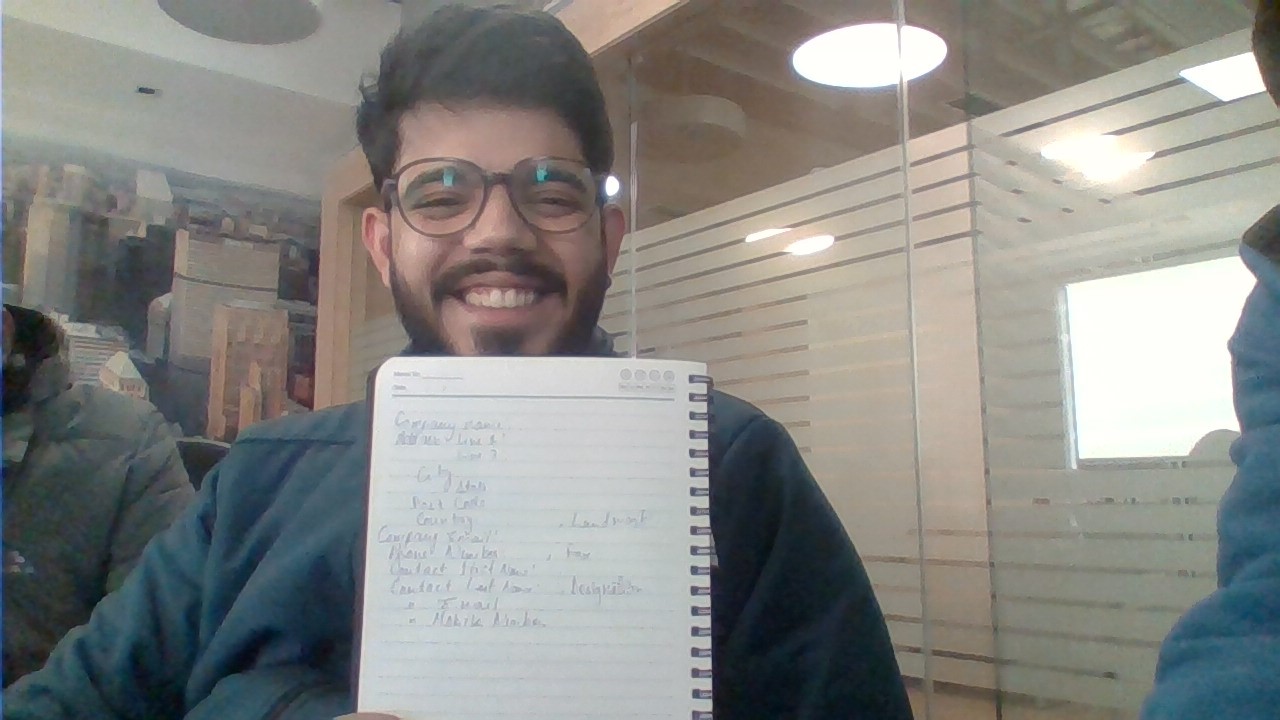 Company name
Address Line 1:
Line 2
City
State
Post Code
Country , Landmark
Company Email:
Phone Number , Fax
Contact First Name:
Contact Last Name: , Designation
" Email
" Mobile Number